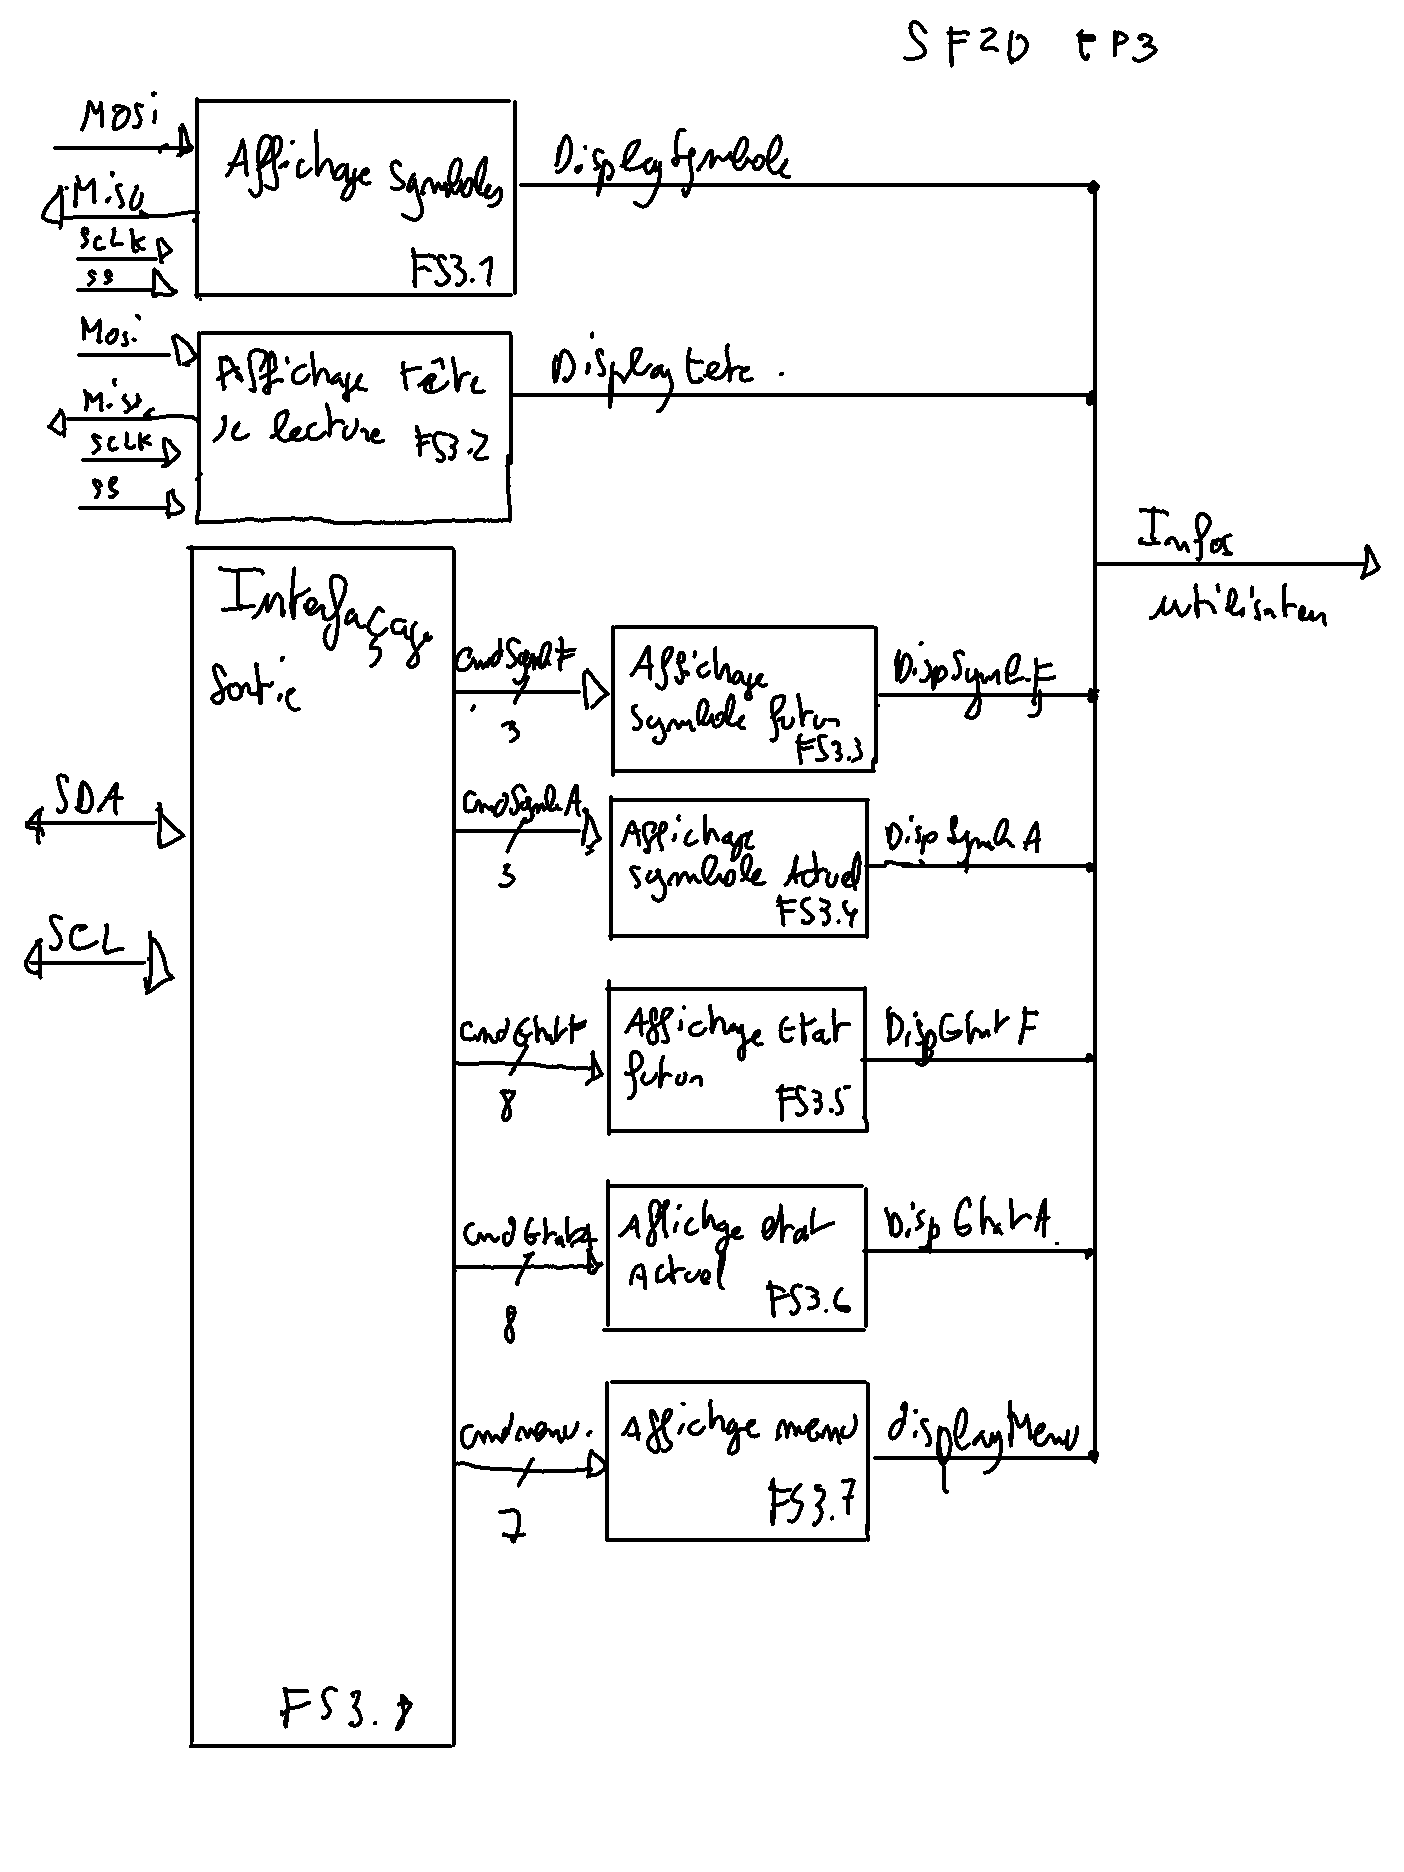 SF2D tP3
Mosi
Miso
SCLK
SS
Affichage symboles
FS3.1
DisplaySymbole
Mosi
Miso
SCLK
SS
Affichage tête
de lecture FS3.2
Display tete
Infos
utilisateur
Interfaçage
Sortie
SDA
SCL
FS3.8
cmdSymbF
3
Affichage
symbole futur
FS3.3
DispSymbF
cmdSymbA
3
Affichage
symbole Actuel
FS3.4
DispSymbA
cmdEtatF
8
Affichage Etat
futur
FS3.5
DispEtatF
cmdEtatA
8
Affichge etat
Actuel
FS3.6
DispEtatA
cmdmenu
7
Affichge menu
FS3.7
displayMenu